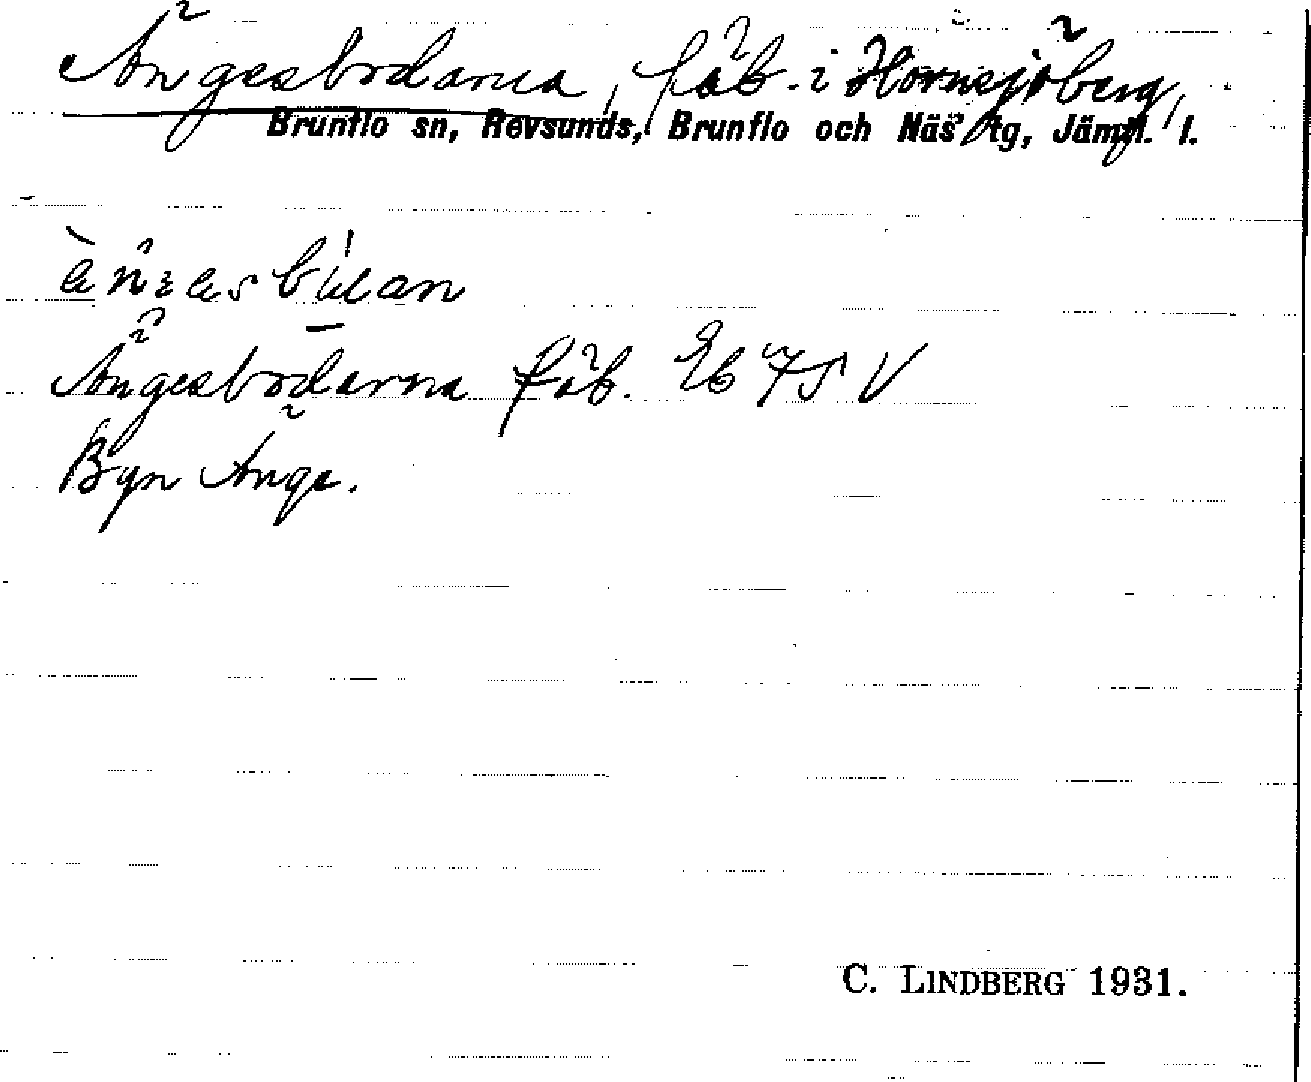 Ängesbodarna, fäb. i Hornsjöberg,
Brunflo sn, Revsunds, Brunflo och Näs tg, Jämtl. l.
Ängesbodarna fäb. Eb 75 V
Byn Änge.
C. LINDBERG 1931.